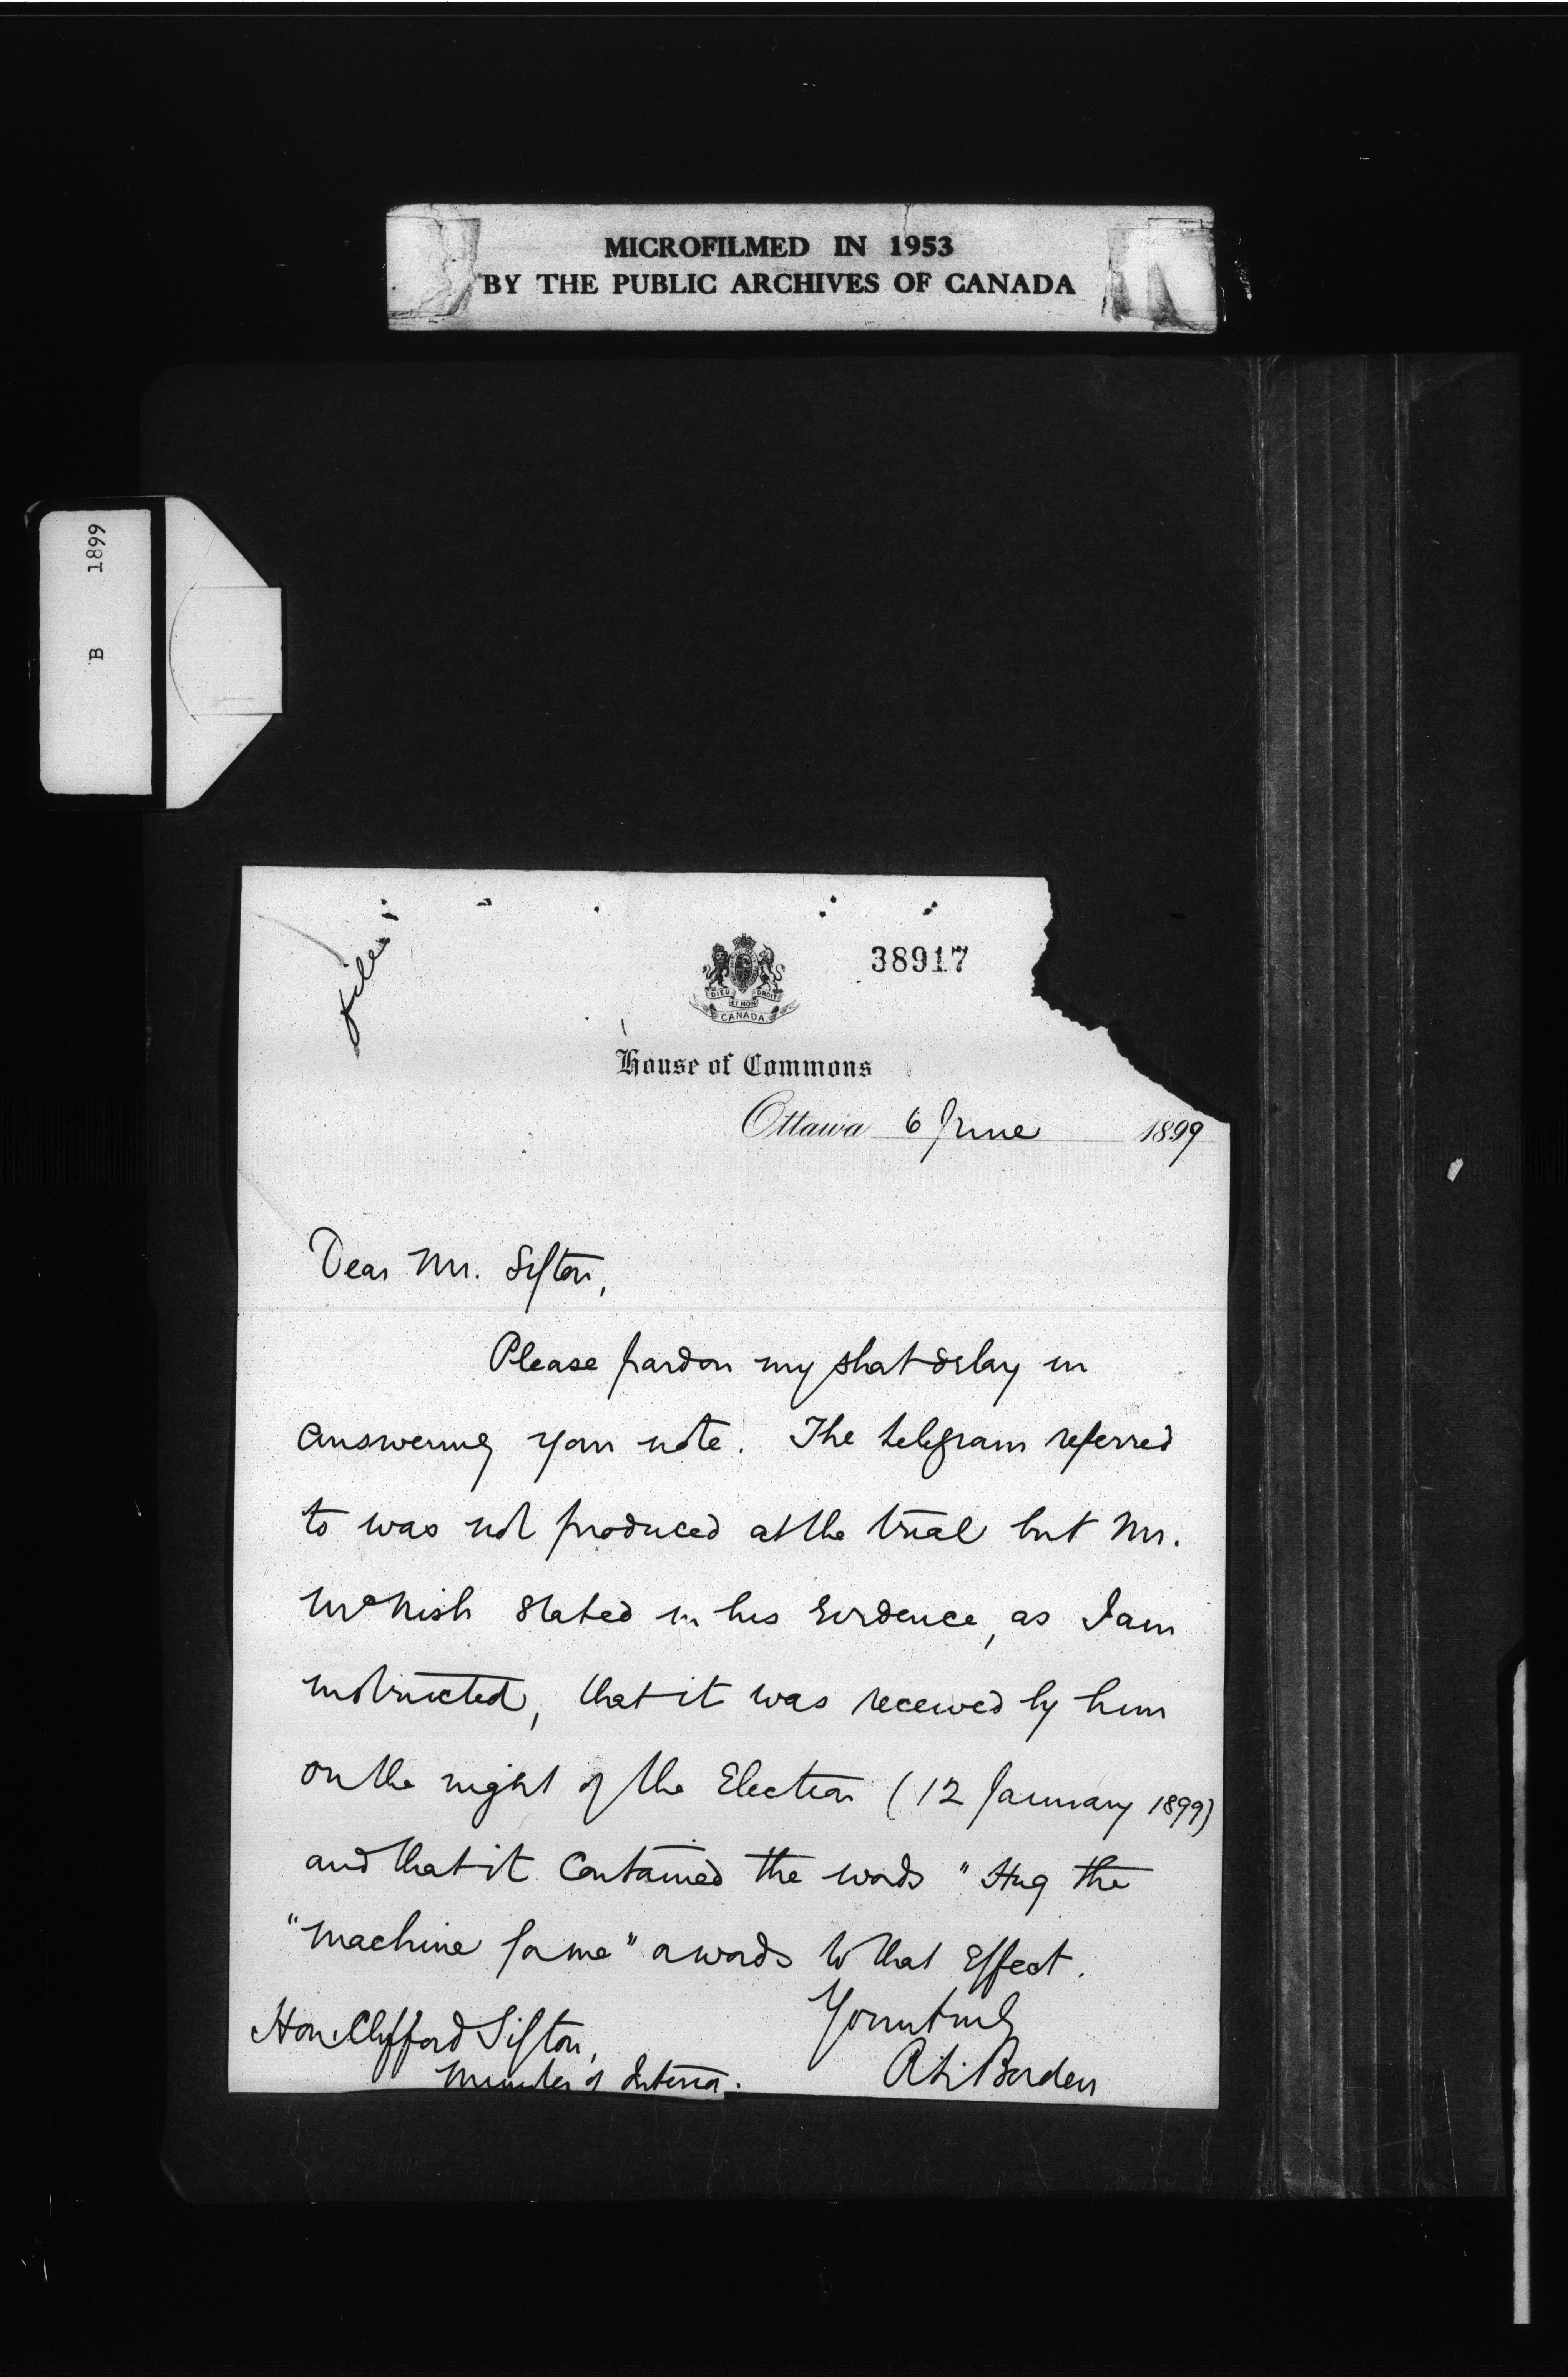 MICROFILMED IN 1953
BY THE PUBLIC ARCHIVES OF CANADA
B 1899
file
38917
DIEU ET MON DROIT
CANADA
House of Commons
Ottawa 6 June 1899
Dear Mr. Sifton,
Please pardon my short delay in
answering your note. The telegram referred
to was not produced at the trial but Mr.
McNish stated in his Evidence, as I am
instructed, that it was received by him
on the night of the Election (12 January 1899)
and that it contained the words "Hug the
"machine for me" or words to that Effect.
Yours truly
R L Borden
Hon. Clifford Sifton,
Minister of Interior.